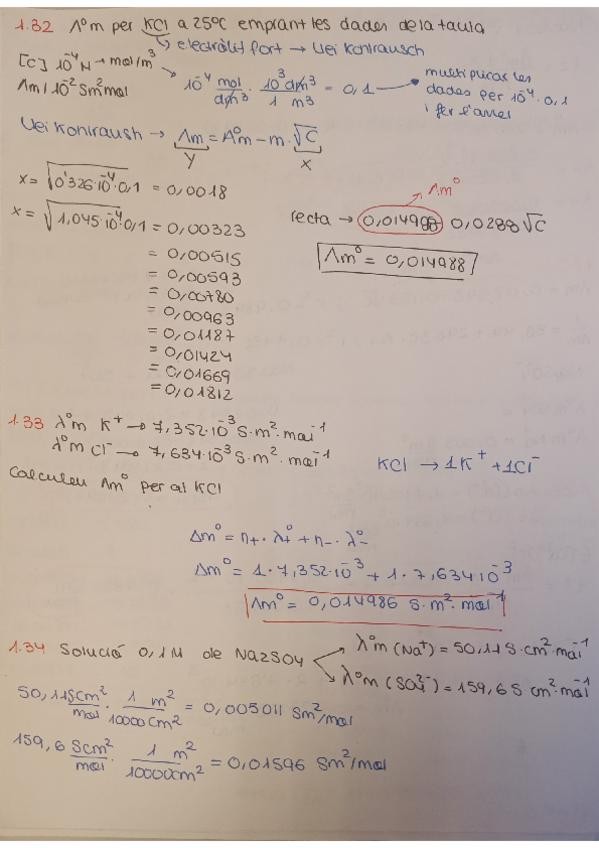 1.32 Λ°m per KCl a 25ºC emprant les dades de la taula
electròlit fort → Llei Kohlrausch
[C] 10⁻⁴ M → mol/m³
Λm / 10⁻² Sm²mol
10⁻⁴ mol/dm³ · 10³ dm³/1 m³ = 0,1 → multiplicar les
dades per 10⁻⁴ · 0,1
i fer l'arrel
Llei Kohlraush → Λm = Λ°m - m · √C
Y X
x = √0'326·10⁻⁴·0,1 = 0,0018
x = √1,045·10⁻⁴·0,1 = 0,00323
= 0,00515
= 0,00593
= 0,00780
= 0,00963
= 0,01187
= 0,01424
= 0,01669
= 0,01812
Λm°
recta → 0,014988 0,0288√C
Λm° = 0,014988
1.33 λ°m K⁺ → 7,352·10⁻³ S·m²·mol⁻¹
λ°m Cl⁻ → 7,634·10⁻³ S·m²·mol⁻¹
Calculeu Λm° per al KCl
KCl → 1K⁺ + 1Cl⁻
Λm° = n₊ · λ₊° + n₋ · λ°₋
Λm° = 1 · 7,352·10⁻³ + 1 · 7,634·10⁻³
Λm° = 0,014986 S·m²·mol⁻¹
1.34 Solució 0,1M de Na2SO4
λ°m (Na⁺) = 50,11 S·cm²·mol⁻¹
λ°m (SO₄²⁻) = 159,6 S cm²·mol⁻¹
50,11 Scm²/mol · 1 m²/10000 cm² = 0,005011 Sm²/mol
159,6 Scm²/mol · 1 m²/10000cm² = 0,01596 Sm²/mol